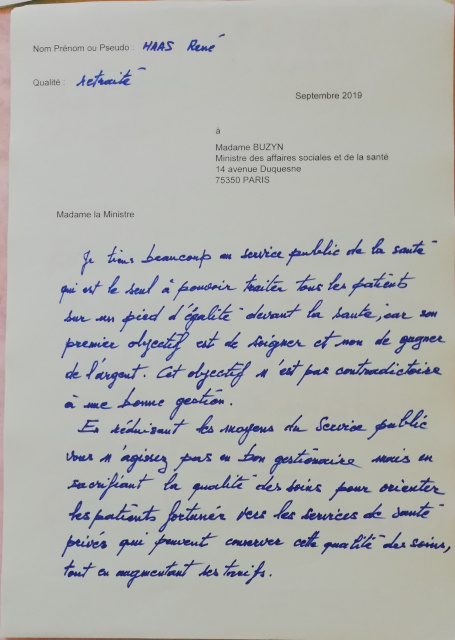 Nom Prénom ou Pseudo : HAAS René
Qualité : retraité
Septembre 2019
à
Madame BUZYN
Ministre des affaires sociales et de la santé
14 avenue Duquesne
75350 PARIS
Madame la Ministre
Je tiens beaucoup au service public de la santé
qui est le seul à pouvoir traiter tous les patients
sur un pied d'égalité devant la santé, car son
premier objectif est de soigner et non de gagner
de l'argent. Cet objectif n'est pas contradictoire
à une bonne gestion.
En réduisant les moyens du Service public
vous n'agissez pas en bon gestionaire mais en
sacrifiant la qualité des soins pour orienter
les patients fortunés vers les services de santé
privés qui peuvent conserver cette qualité des soins,
tout en augmentant ses tarifs.